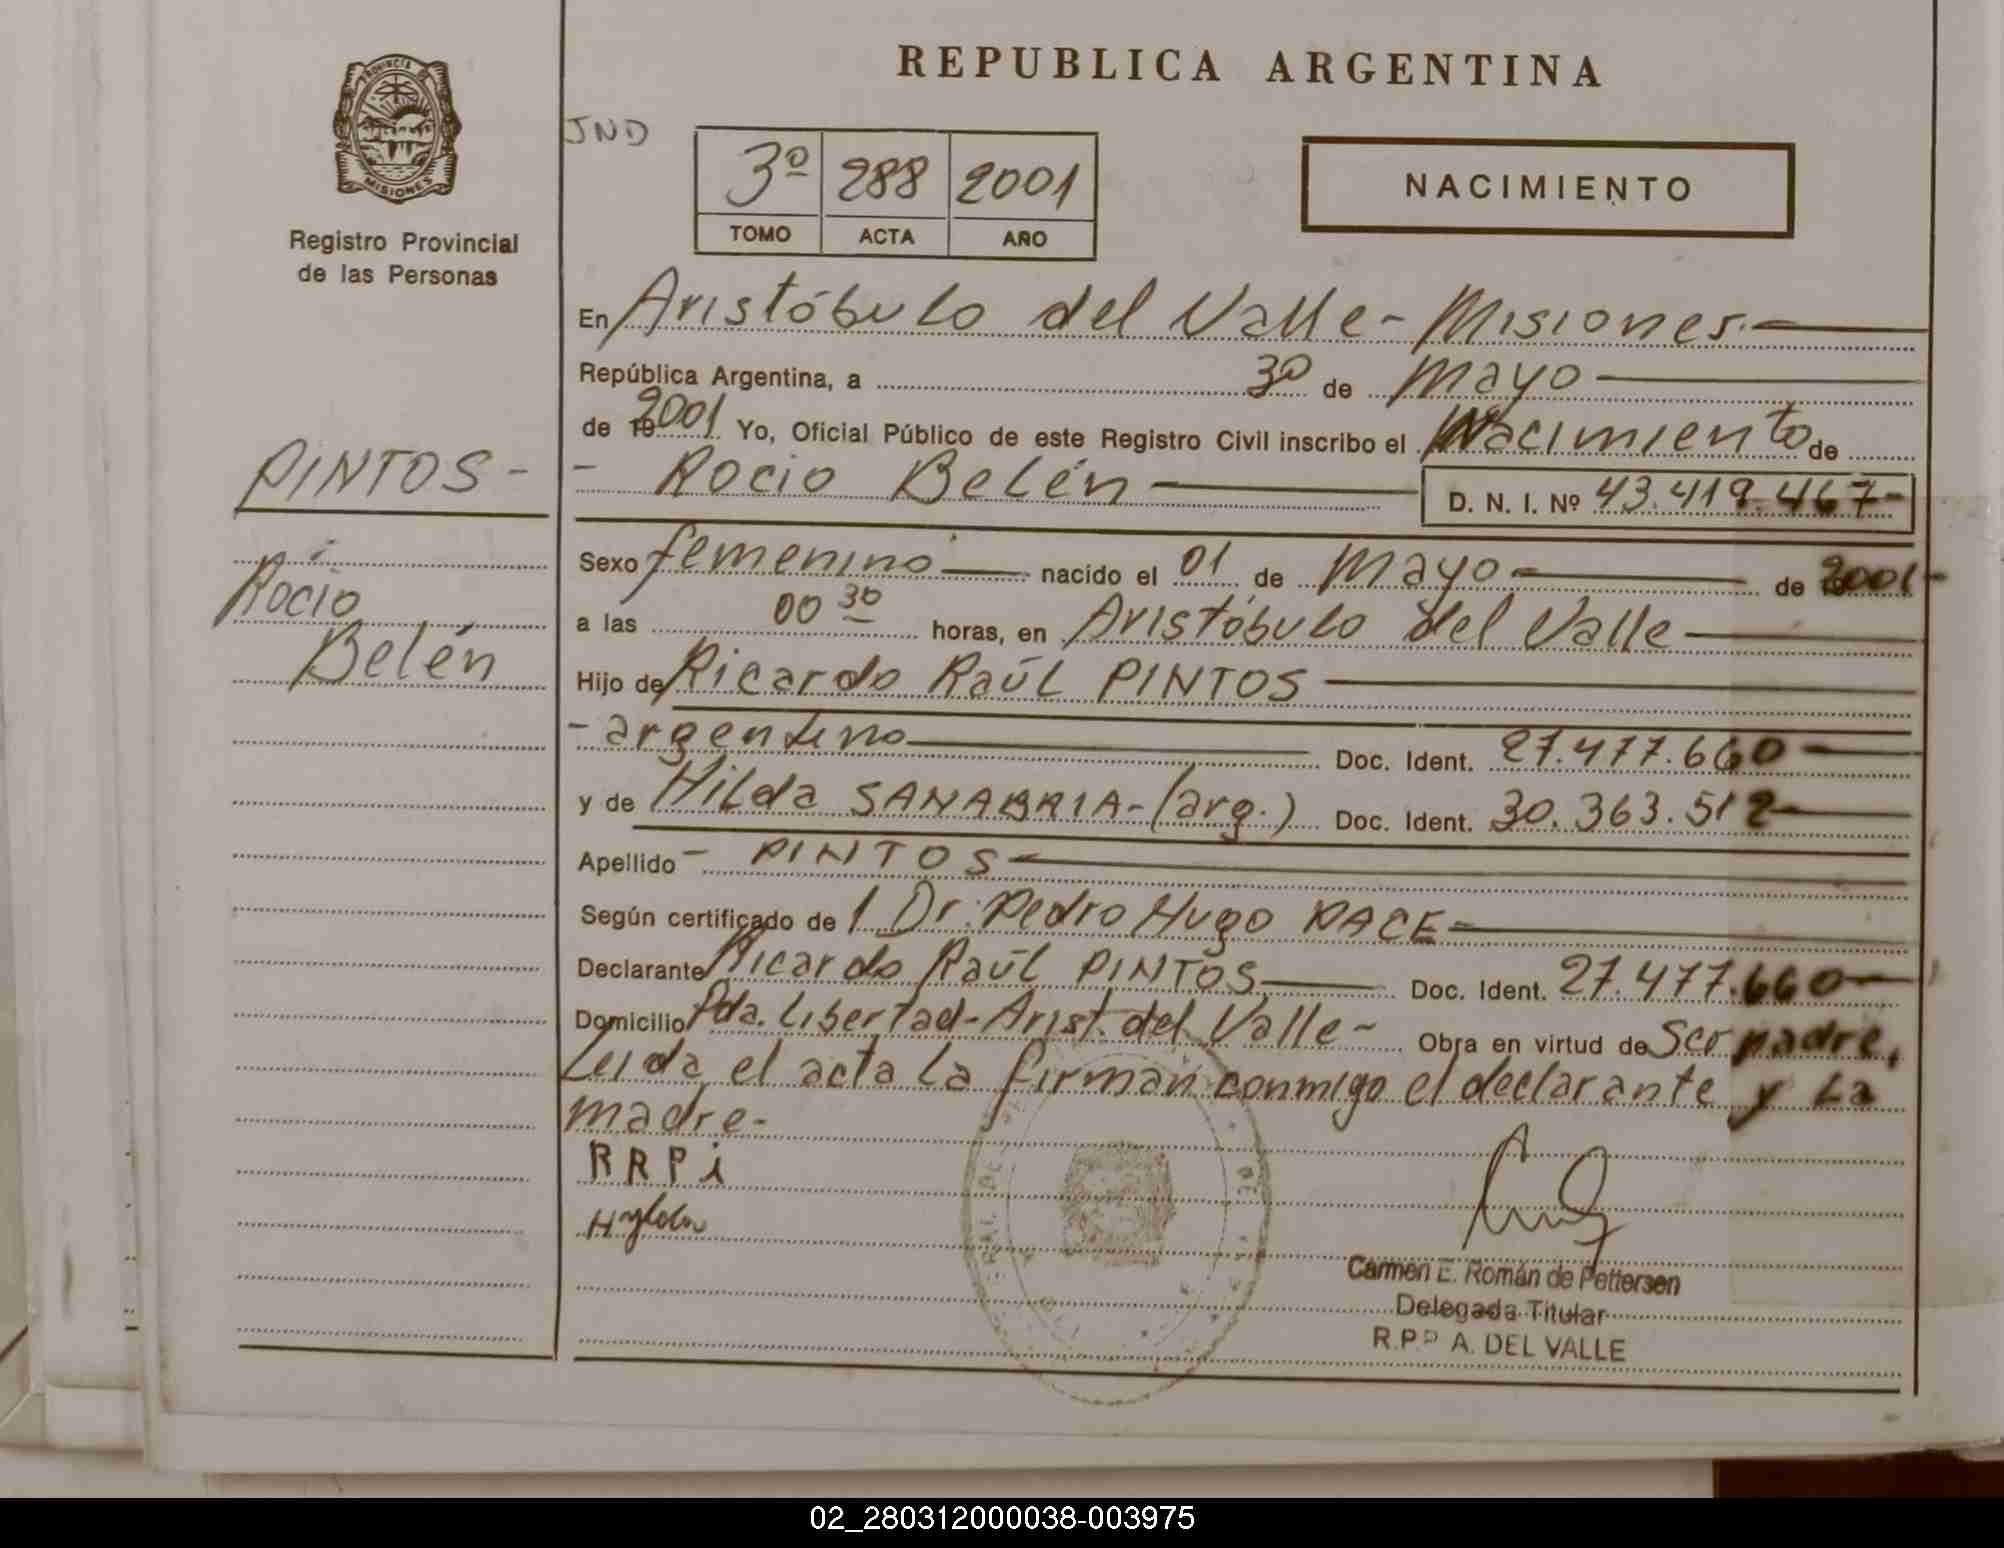 REPUBLICA ARGENTINA
PROVINCIA DE
MISIONES
Registro Provincial
de las Personas
JND
3º 288 2001
TOMO ACTA AÑO
NACIMIENTO
En Aristóbulo del Valle- Misiones.-
República Argentina, a 30 de Mayo
de 2001 Yo, Oficial Público de este Registro Civil inscribo el Nacimiento de
PINTOS-
- Rocio Belén D. N. I. Nº 43.419.467-
Sexo femenino nacido el 01 de Mayo de 2001-
Rocio
a las 00 30 horas, en Aristóbulo del Valle
Belén
Hijo de Ricardo Raúl PINTOS
- argentino Doc. Ident. 27.477.660
y de Hilda SANABRIA-(arg.) Doc. Ident. 30.363.512
Apellido - PINTOS
Según certificado de 1 Dr. Pedro Hugo PACE
Declarante Ricardo Raúl PINTOS Doc. Ident. 27.477.660
Domicilio Pda. Libertad-Arist. del Valle- Obra en virtud de Ser padre,
Leida el acta la firman conmigo el declarante y La
madre-
RRPi
Carmen E. Román de Pettersen
Delegada Titular
R.P.P A. DEL VALLE
02_280312000038-003975